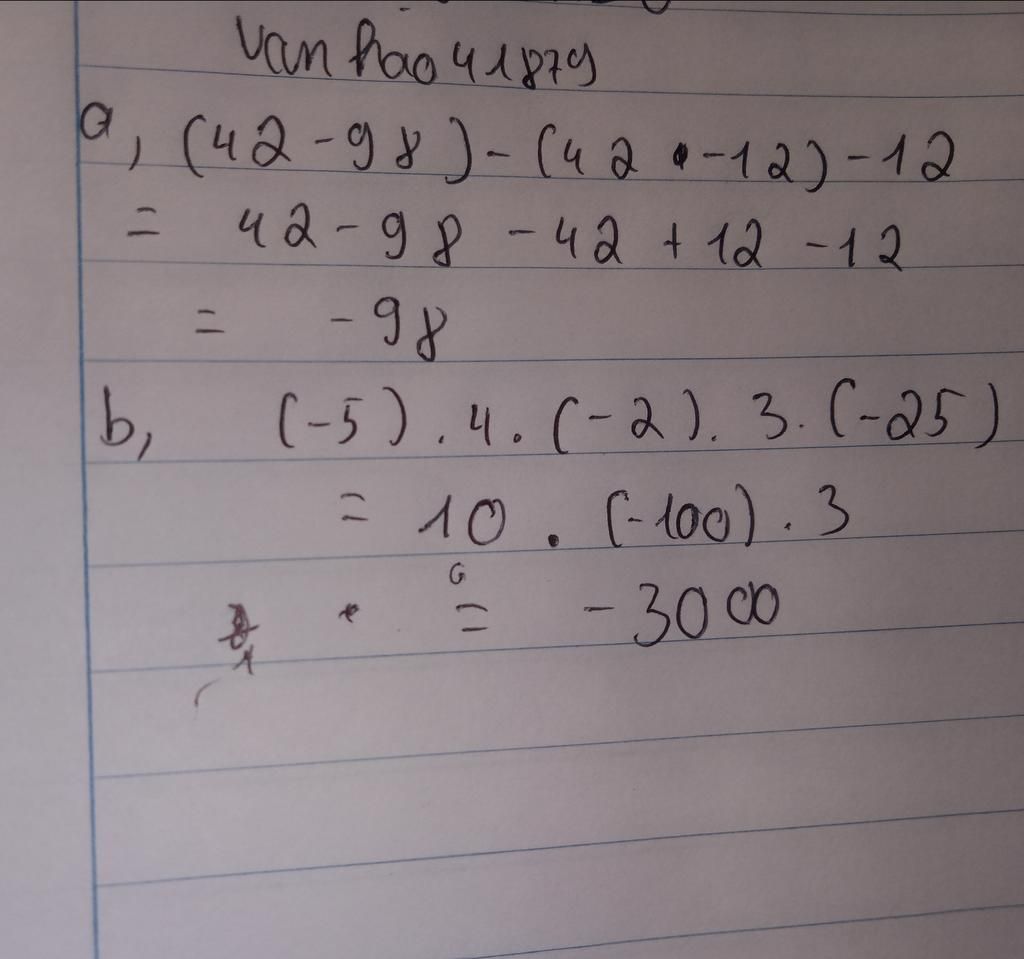 van hao 41879
a, (42 - 98) - (42 - 12) - 12
= 42 - 98 - 42 + 12 - 12
= - 98
b, (-5) . 4 . (-2) . 3 . (-25)
= 10 . (-100) . 3
= - 3000